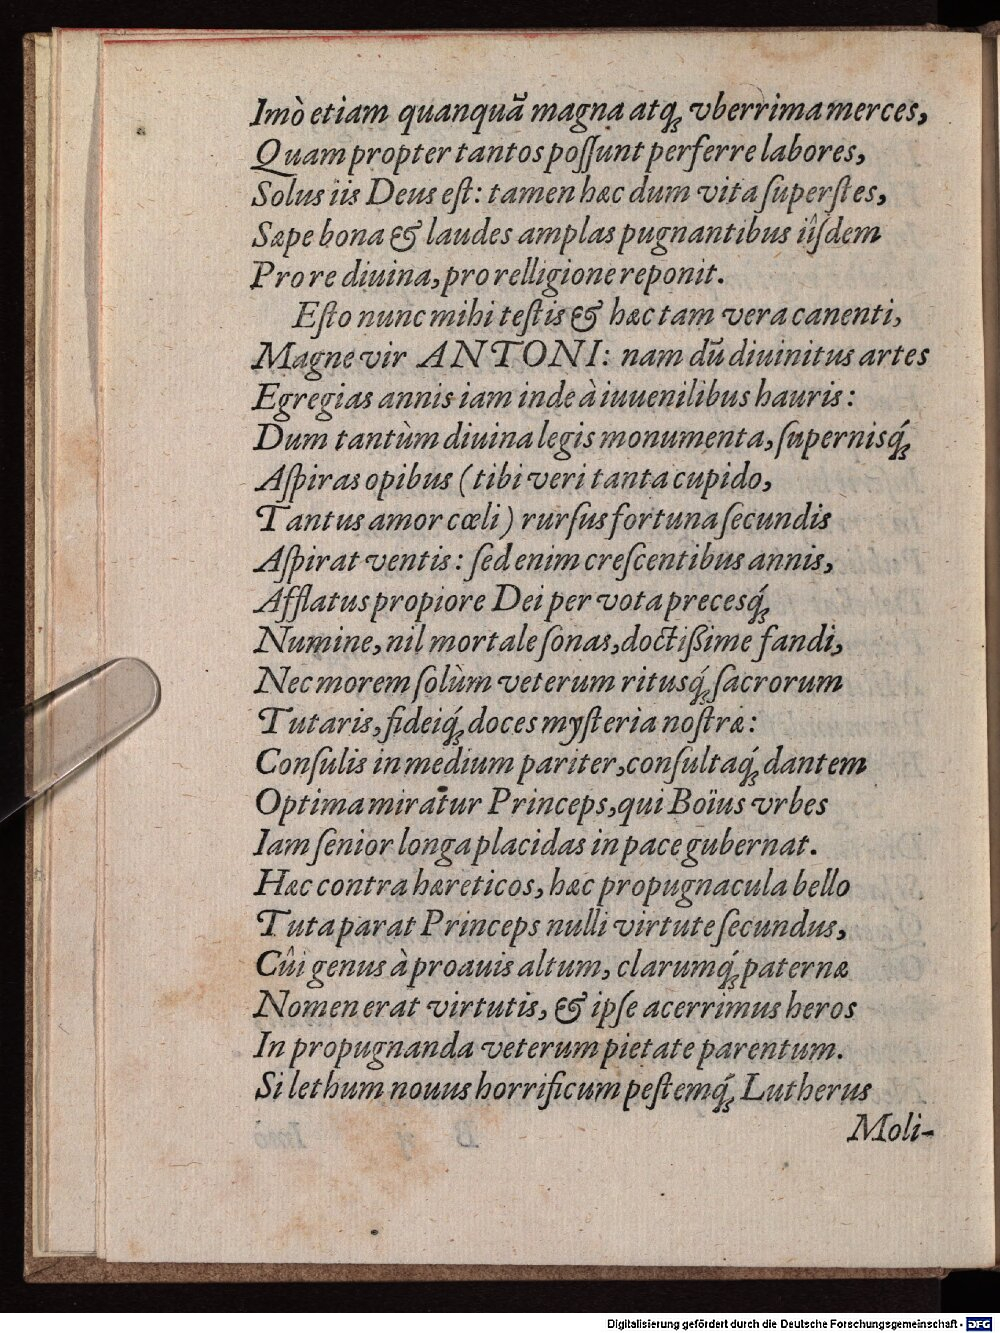 Imò etiam quanquã magna atq́ꝫ vberrima merces,
Quam propter tantos poſſunt perferre labores,
Solus iis Deus eſt: tamen hæc dum vita ſuperſtes,
Sæpe bona & laudes amplas pugnantibus iîſdem
Pro re diuina, pro relligione reponit.
Eſto nunc mihi teſtis & hæc tam vera canenti,
Magne vir ANTONI: nam dū diuinitus artes
Egregias annis iam inde à iuuenilibus hauris:
Dum tantùm diuina legis monumenta, ſupernisq́ꝫ
Aſpiras opibus (tibi veri tanta cupido,
Tantus amor cœli) rurſus fortuna ſecundis
Aſpirat ventis: ſed enim creſcentibus annis,
Afflatus propiore Dei per vota precesq́ꝫ
Numine, nil mortale ſonas, doctißime fandi,
Nec morem ſolùm veterum ritusq́ꝫ ſacrorum
Tutaris, fideiq́ꝫ doces myſteria noſtræ:
Conſulis in medium pariter, conſultaq́ꝫ dantem
Optima miratur Princeps, qui Boïus vrbes
Iam ſenior longa placidas in pace gubernat.
Hæc contra hæreticos, hæc propugnacula bello
Tuta parat Princeps nulli virtute ſecundus,
Cûi genus à proauis altum, clarumq́ꝫ paternæ
Nomen erat virtutis, & ipſe acerrimus heros
In propugnanda veterum pietate parentum.
Si lethum nouus horrificum peſtemq́ꝫ Lutherus
Moli-
Digitalisierung gefördert durch die Deutsche Forschungsgemeinschaft - DFG